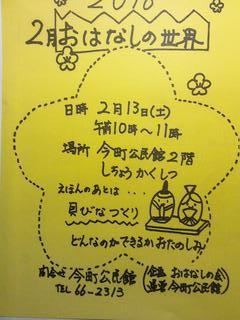 2016
2月おはなしの世界
日時 2月13日(土)
午前10時〜11時
場所 今町公民館2階
しちょうかくしつ
えほんのあとは・・・
貝びなつくり
どんなのができるかおたのしみ!
今町公民館
TEL 66-2313
企画 おはなしの会
運営 今町公民館